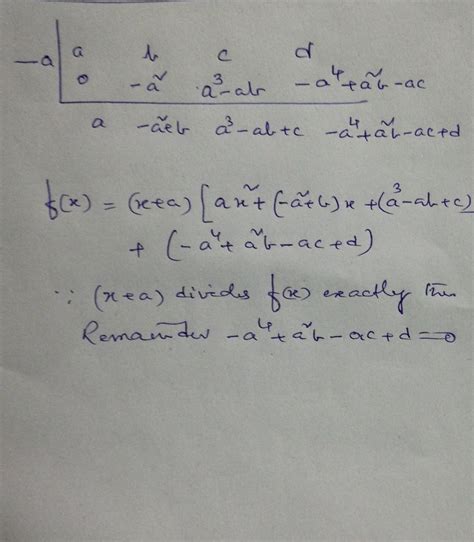 -a | a b c d
0 -a² a³-ab -a⁴+a²b-ac
a -a²+b a³-ab+c -a⁴+a²b-ac+d
f(x) = (x+a) [ax²+(-a²+b)x+(a³-ab+c)
+ (-a⁴+a²b-ac+d)
∵ (x+a) divides f(x) exactly the
Remainder -a⁴+a²b-ac+d=0